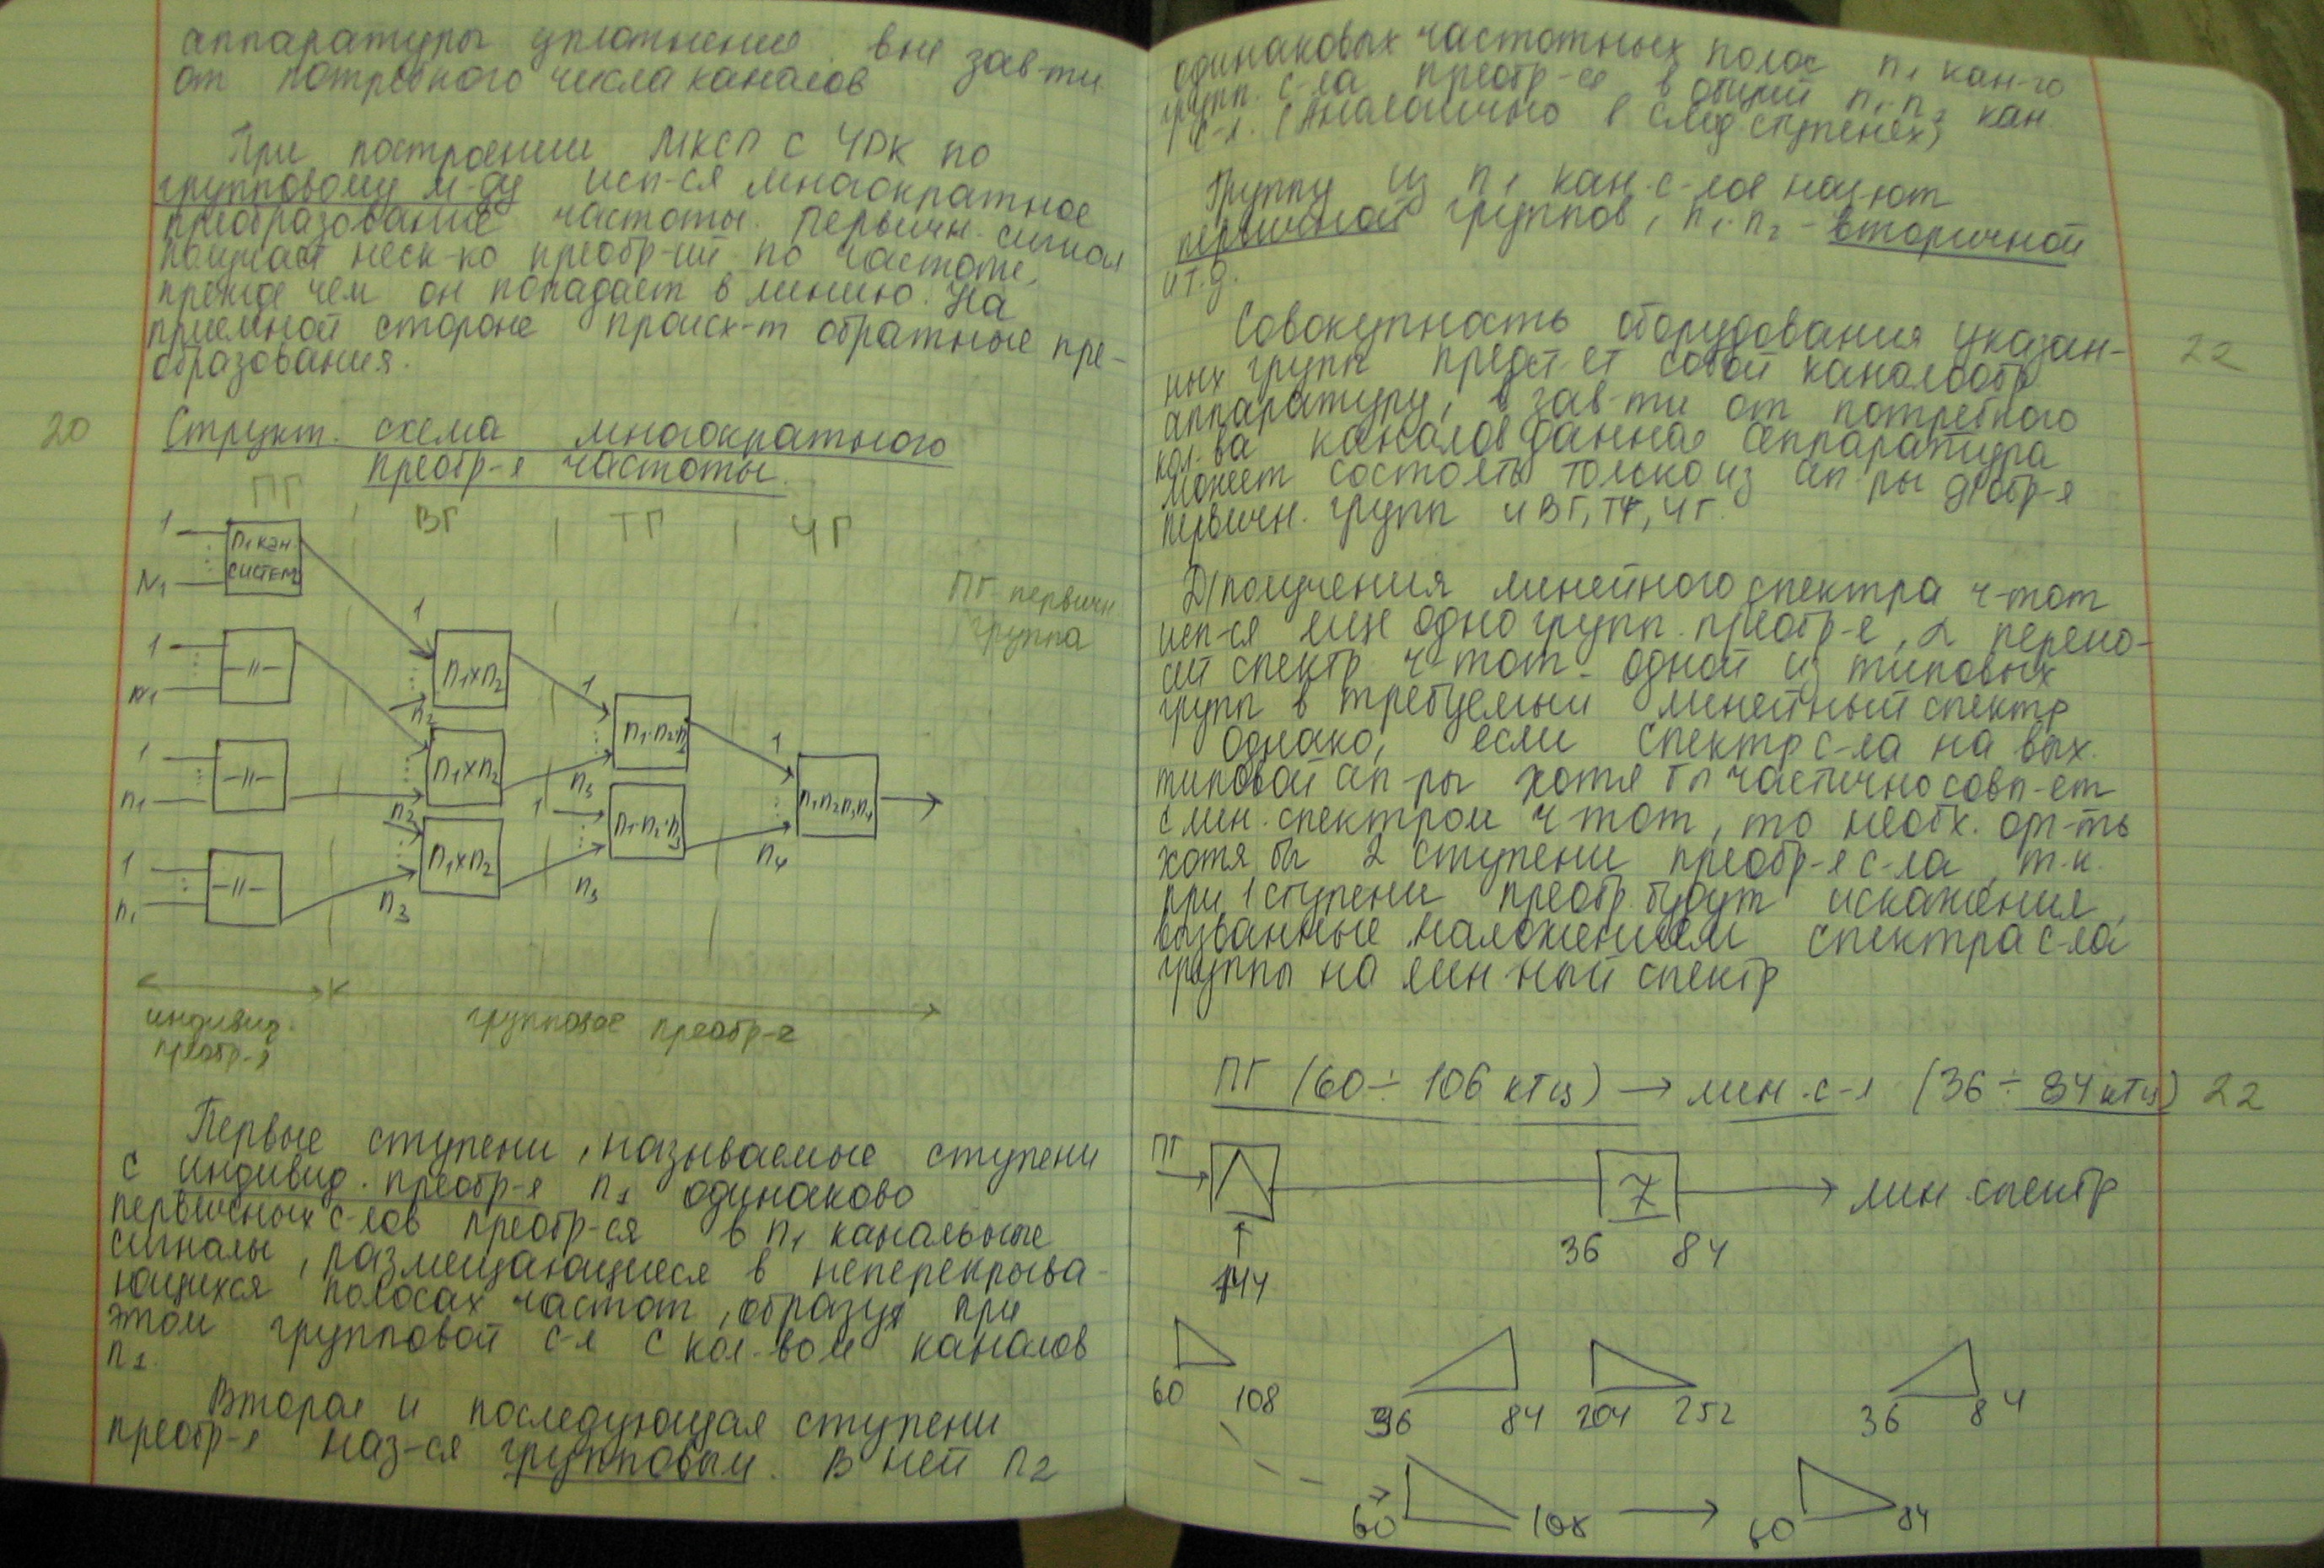 аппаратуры уплотнения вне зав-ти
от потребного числа каналов
При построении МКСП с ЧРК по
групповому м-ду исп-ся многократное
преобразование частоты. Первичн. сигнал
получает неск-ко преобр-ий по частоте,
прежде чем он попадает в линию. На
приемной стороне происх-т обратные пре-
образования.
20
Структ. схема многократного
преобр-я частоты.
ПГ ВГ ТГ ЧГ
1
n1 кан.
систем
N1
ПГ первичн
группа
1
1 -||- n1
n1×n2
1
n2
n1·n2·n3
1
1 -||- n1
n1×n2
n3
n1n2n3n4
n2
1
n1·n2·n3
1 -||- n1
n1×n2
n4
n2
n3
индивид.
преобр-я
групповое преобр-е
Первые ступени, называемые ступени
с индивид. преобр-я n1 одинаково
первичных с-лов преобр-ся в n1 канальные
сигналы, размещающиеся в неперекрыва-
ющихся полосах частот, образуя при
этом групповой с-л с кол-вом каналов
n1.
Вторая и последующая ступени
преобр-я наз-ся групповым. В ней n2
одинаковых частотных полос n1 кан-го
групп. с-ла преобр-ся в общий n1·n2 кан.
с-л. (Аналогично в след. ступенях)
Группу из n1 кан. с-лов наз-ют
первичной группов, n1·n2 - вторичной
и т.д.
Совокупность оборудования указан- 22
ных групп предст-ет собой каналообр.
аппаратуру, в зав-ти от потребного
кол-ва каналов данная аппаратура
может состоять только из ап-ры образ-я
первичн. групп и ВГ, ТГ, ЧГ.
Д/получения линейного спектра ч-тот
исп-ся еще одно групп. преобр-е, 2 перено-
сит спектр ч-тот одной из типовых
групп в требуемый линейный спектр
Однако, если спектр с-ла на вых.
типовой ап-ры хотя бы частично совп-ет
с лин. спектром ч-тот, то необх. орг-ть
хотя бы 2 ступени преобр-я с-ла, т.к.
при 1 ступени преобр. будут искажения,
вызванные наложением спектра с-ла
группы на лин-ный спектр
ПГ (60÷106 кГц) → лин. с-л (36÷84 кГц) 22
ПГ
лин. спектр
36 84
144
60 108 36 84 204 252 36 84
60 108 → 60 84